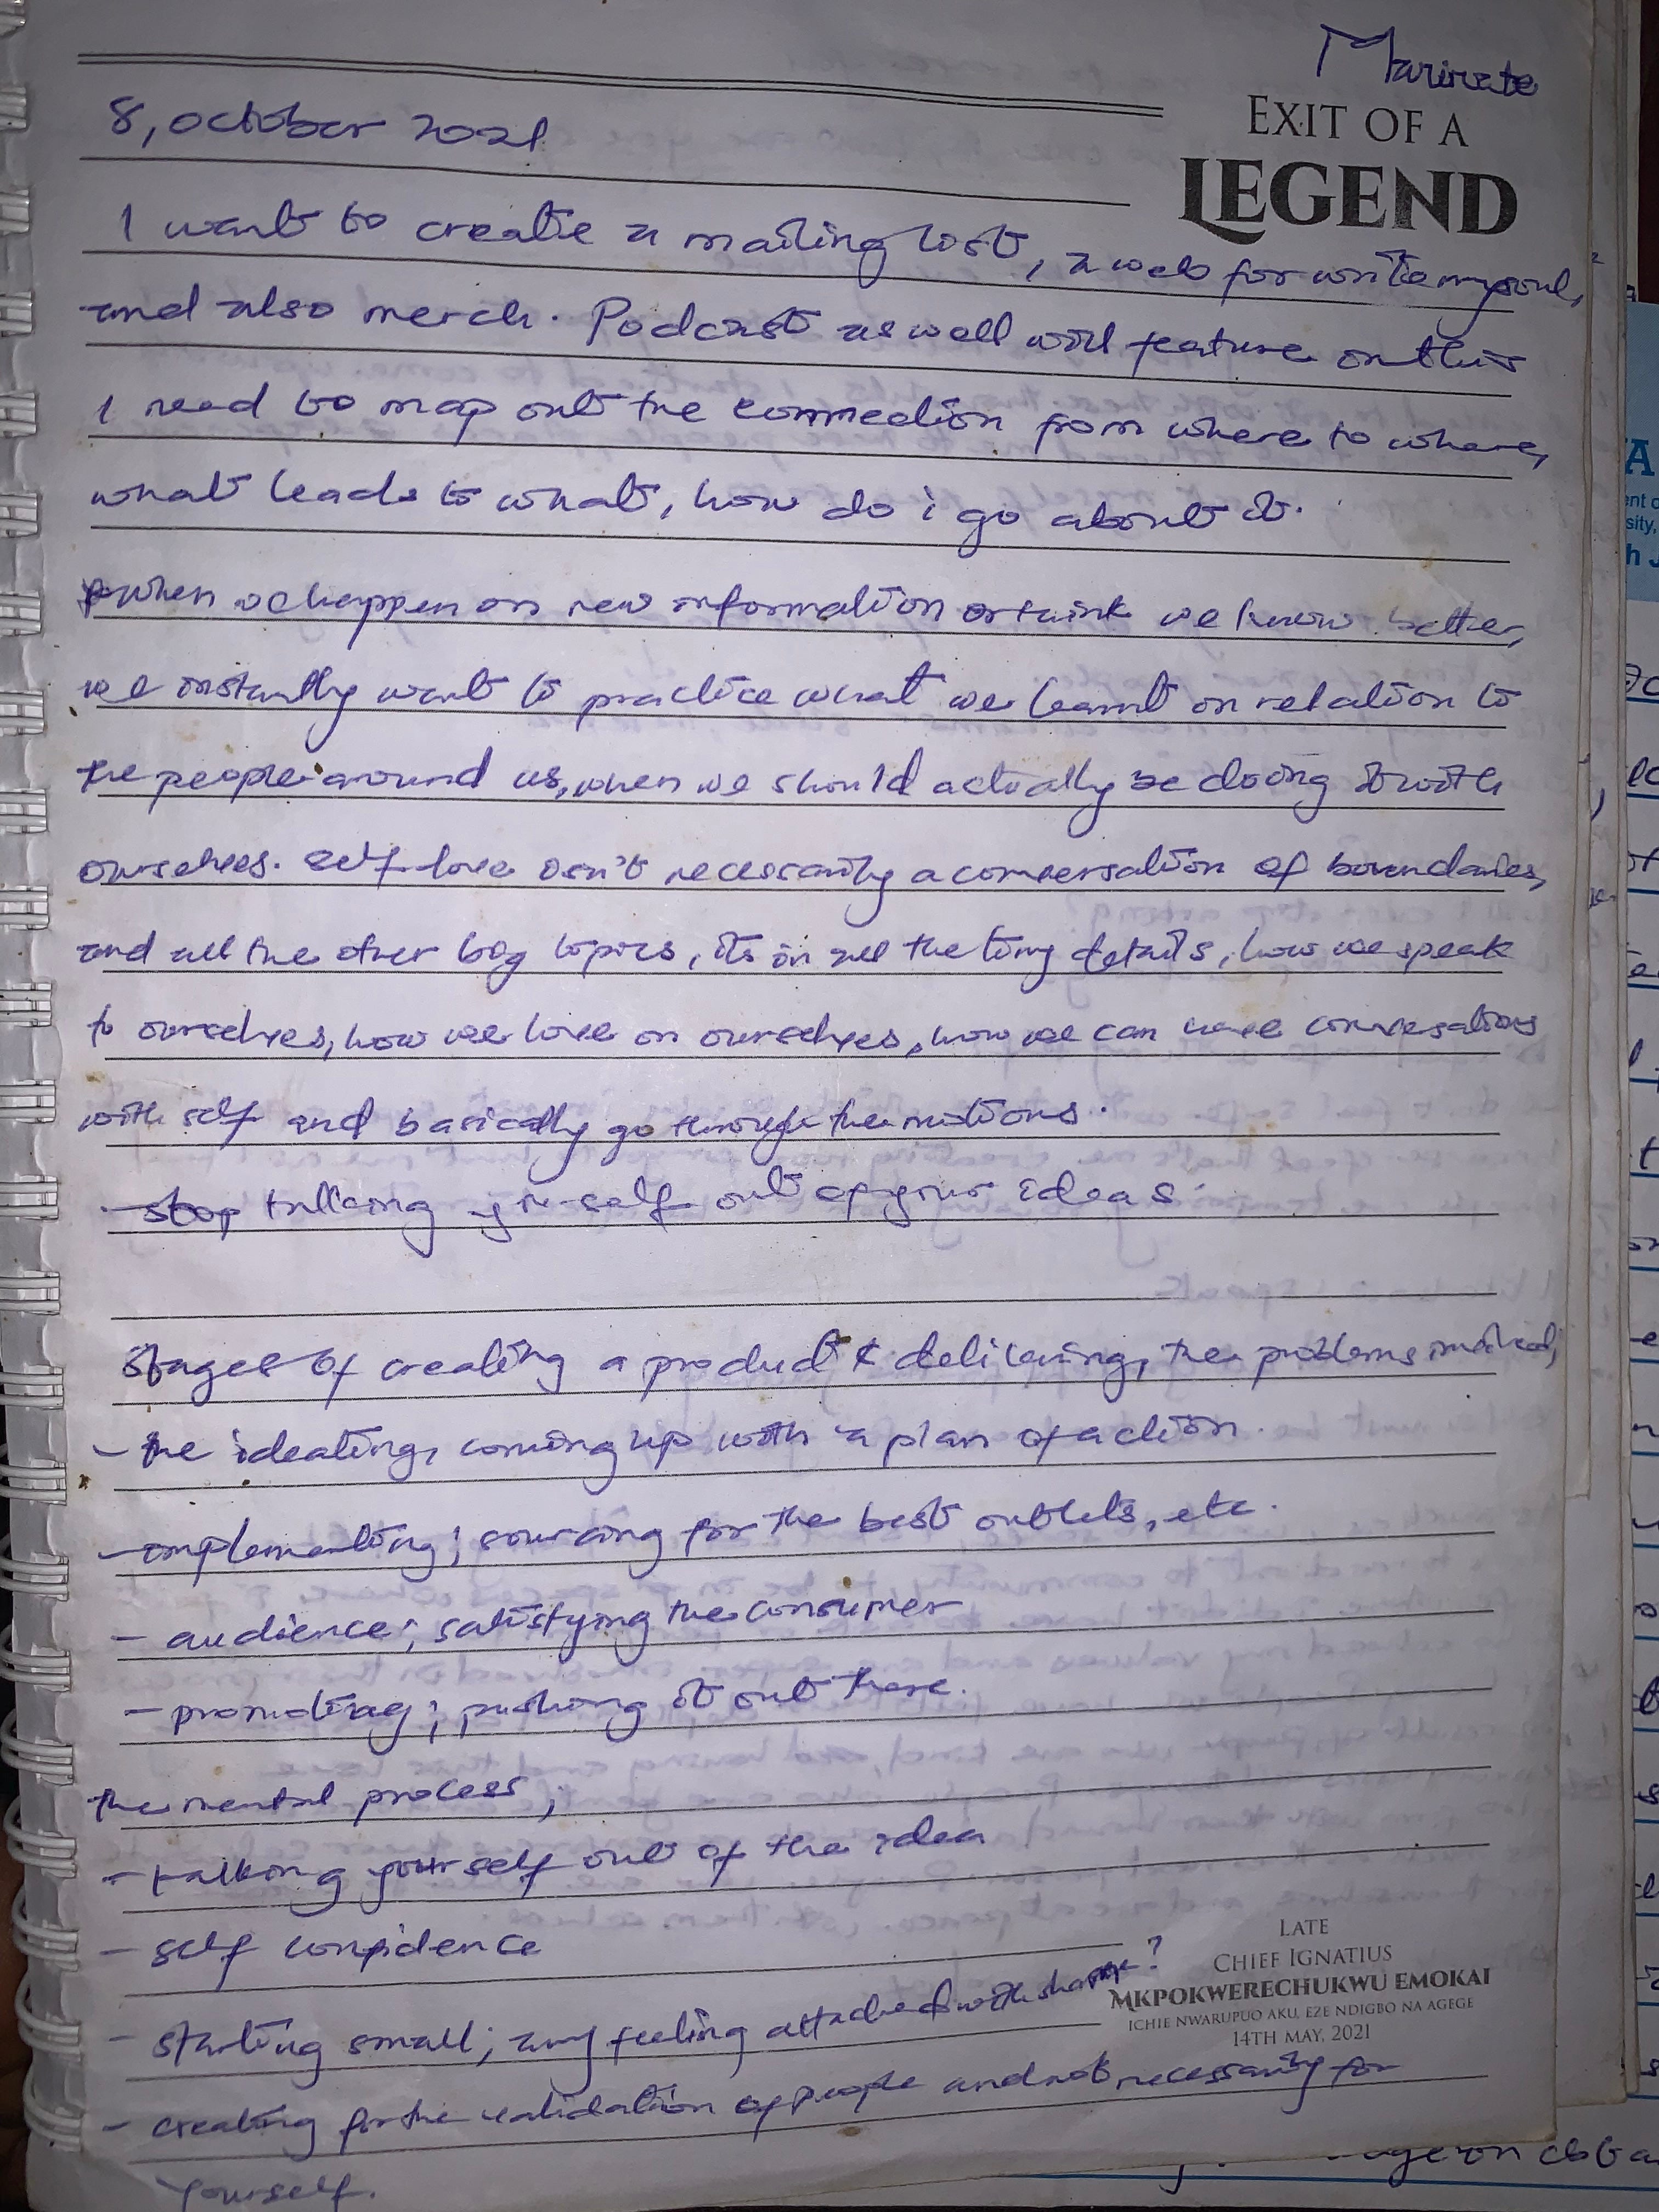 Marinate
EXIT OF A
LEGEND
8, october 2021
I want to create a mailing list, a web for writemysoul,
and also merch. Podcast as well will feature on this
I need to map out the connection from where to where,
what leads to what, how do i go about it.
when we happen on new information or think we know better,
we instantly want to practice what we learnt in relation to
the people around us, when we should actually be doing it with
ourselves. self love isn't necessarily a conversation of boundaries,
and all the other big topics, its in all the tiny details, how we speak
to ourselves, how we love on ourselves, how we can have conversations
with self and basically go through the motions.
- stop talking yourself out of your ideas.
Stages of creating a product & delivering, the problems involved;
- the ideating, coming up with a plan of action.
- implementing; sourcing for the best outlets, etc.
- audience; satisfying the consumer
- promoting; pushing it out there.
the mental process;
- talking yourself out of the idea
- self confidence
- starting small; any feeling attached with shame?
- creating for the validation of people and not necessarily for
yourself.
LATE
CHIEF IGNATIUS
MKPOKWERECHUKWU EMOKAI
ICHIE NWARUPUO AKU, EZE NDIGBO NA AGEGE
14TH MAY, 2021